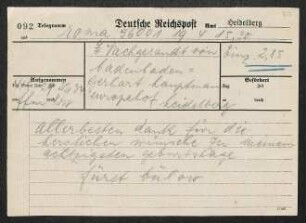 092 Telegramm Deutsche Reichspost Amt Heidelberg
Roma 96001 19 4 15,20
= Nachgesandt von
badenbaden =
Aufgenommen Befördert
gerhart hauptmann
europahof heidelberg
allerbesten dank für die
herzlichen wünsche zu meinem
achtzigsten geburtstage
fürst bülow